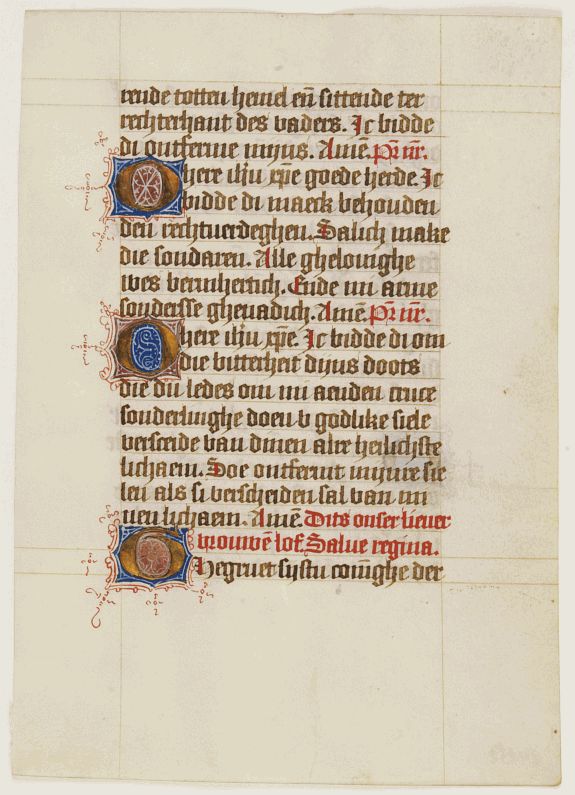 rende totten hemel eñ sittende ter
rechterhant des vaders. Ic bidde
di ontferme mijns. Amē. Pr̄ nr̄.
O here ihū xp̄e goede herde. Ic
bidde di maeck behouden
den rechtuerdeghen. Salich make
die sondaren. Alle ghelouighe
wes bermhertich. Ende mi arme
sonderſſe ghenadich. Amē. Pr̄ nr̄.
O here ihū xp̄e. Ic bidde di om
die bitterheit dijns doots
die du ledes om mi aenden cruce
sonderlinghe doen v godlike siele
versceide van dinen alre heilichste
lichaem. Soe ontfermt mijnre sie
len als si verscheiden sal van mi
nen lichaem. Amē. Dits onser lieuer
vrouwē lof. Salue regina.
Ghegruet sijstu coniīghe der